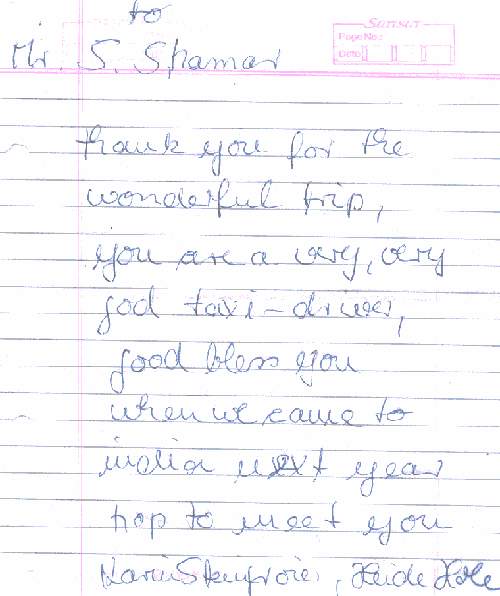 to
Sunsur
Page No.:
Date
Mr. S. Shamar
thank you for the
wonderful trip,
you are a very, very
god taxi-driver,
good bless you
when we came to
india next year
hop to meet you
Karin, Heide